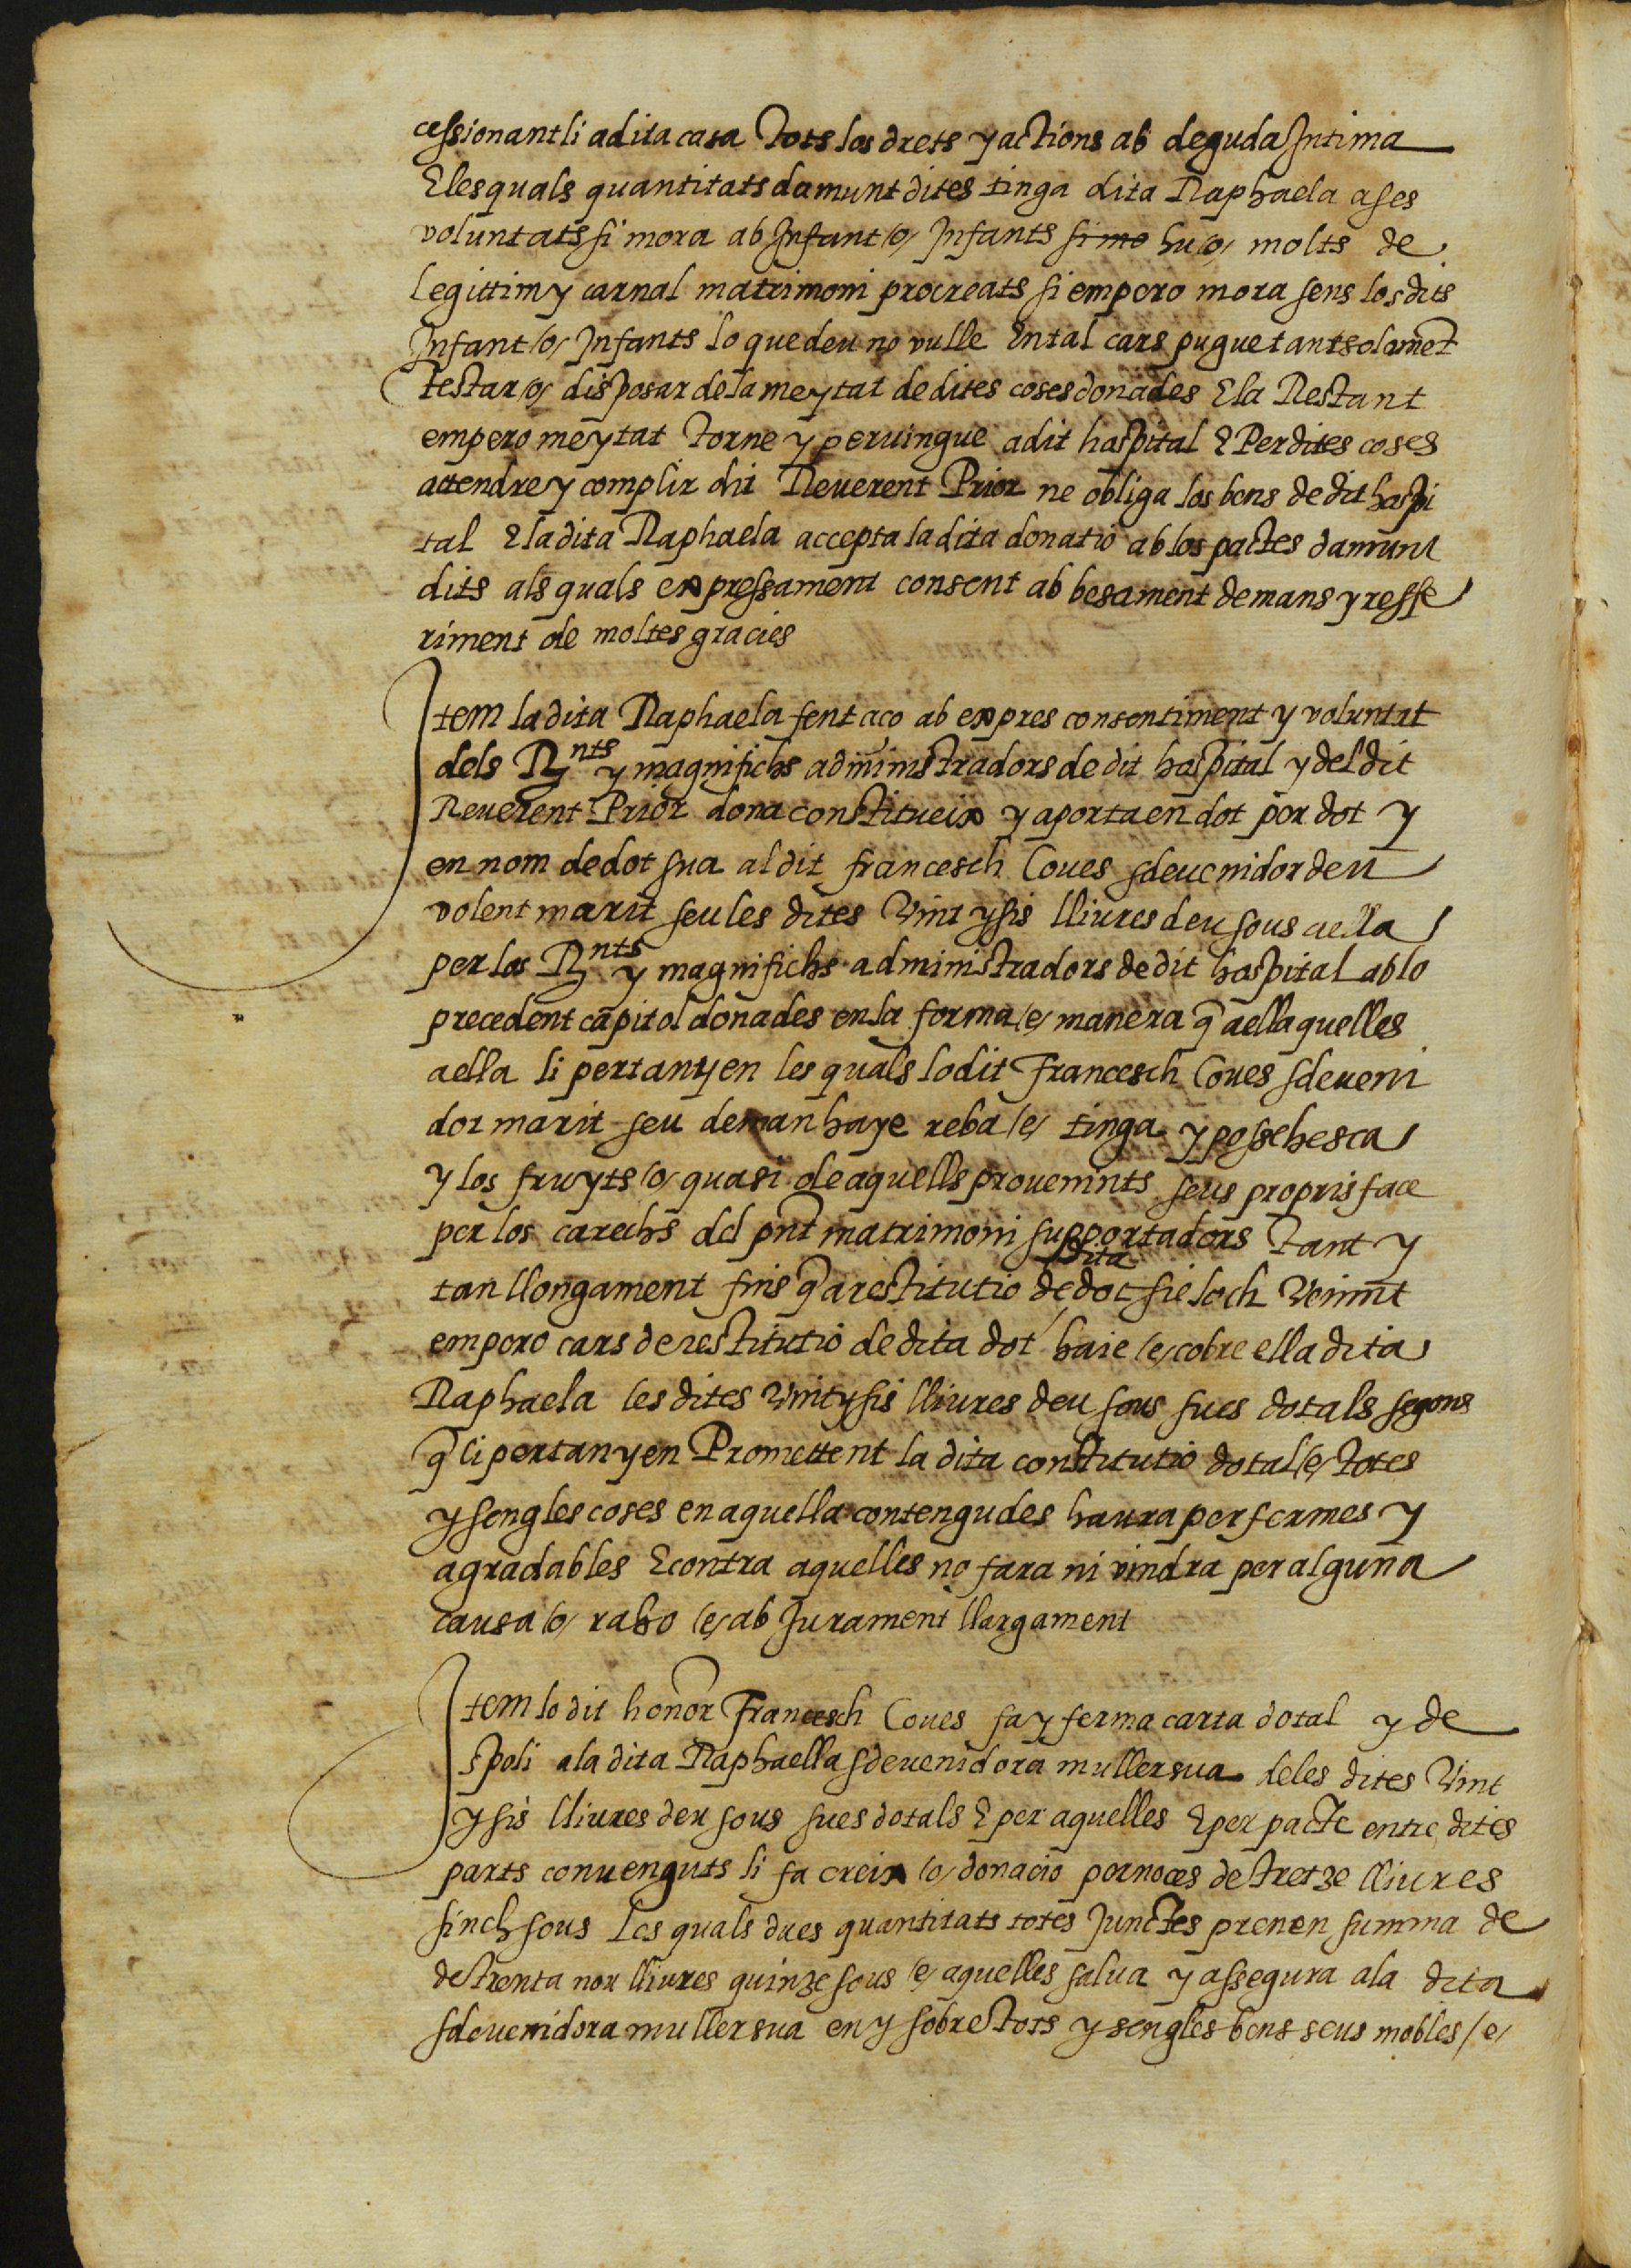 cessionantli a dita casa tots los drets y actions ab deguda Intima
E les quals quantitats damunt dites tinga dita Raphaela a ses
voluntats si mora ab Infant /o/ Infants si mo hu /o/ molts de
legittim y carnal matrimoni procreats si empero mora sens los dits
Infant /o/ Infants lo que deu no vulle En tal cars pugue tantsolamēt
testar /o/ disposar de la meytat de dites coses donades E la Restant
empero meytat torne y peruingue a dit hospital E Per dites coses
attendre y complir dit Reuerent Prior ne obliga los bens de dit hospi
tal E la dita Raphaela accepta la dita donatio ab los pactes damunt
dits als quals expressament consent ab besament de mans y reffe
riment de moltes gracies
Item la dita Raphaela fent aço ab expres consentiment y voluntat
dels R.nts y magnifichs administradors de dit hospital y del dit
Reuerent Prior dona constitueix y aporta en dot per dot y
en nom de dot sua al dit francesch Coues sdeuenidor deu
volent marit seu les dites Vint y sis lliures deu sous a ella
per los R.nts y magnifichs administradors de dit hospital ab lo
precedent capitol donades en la forma /e/ manera q̄ a ella quelles
a ella li pertanyen les quals lo dit Francesch Coues sdeueni
dor marit seu deman haye reba /e/ tinga y possehesca
y los fruyts /o/ quasi de aquells prouenints seus propris face
per los carechs del pnt matrimoni supportadors tant y
tan llongament fins q̄ a restitutio de dita dot sie loch Venint
empero cars de restitutio de dita dot haie /e/ cobre ella dita
Raphaela les dites Vint y sis lliures deu sous sues dotals segons
q̄ li pertanyen Promettent la dita constitutio dotal /e/ totes
y sengles coses en aquella contengudes haura per fermes y
agradables E contra aquelles no fara ni vindra per alguna
causa /o/ raho /e/ ab Jurament llargament
Item lo dit honor Francesch Coues fa y ferma carta dotal y de
spoli a la dita Raphaella sdeuenidora muller sua deles dites Vint
y sis lliures deu sous sues dotals E per aquelles E per pacte entre dites
parts conuenguts li fa creix /o/ donacio per noces de tretze lliures
sinch sous Les quals dues quantitats totes Junctes prenen summa de
de trenta nou lliures quinze sous /e/ aquelles salua y assegura a la dita
sdeuenidora muller sua en y sobre tots y sengles bens seus mobles /e/